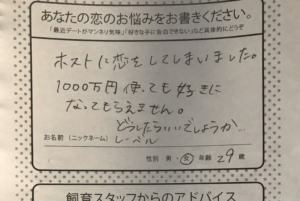 あなたの恋のお悩みをお書きください。
「最近デートがマンネリ気味」「好きな子に告白できない」など具体的にどうぞ
ホストに恋をしてしまいました。
1000万円使っても好きに
なってもらえません。
どうしたらいいでしょうか…
お名前(ニックネーム) レーベル
性別 男・女 年齢 29 歳
飼育スタッフからのアドバイス